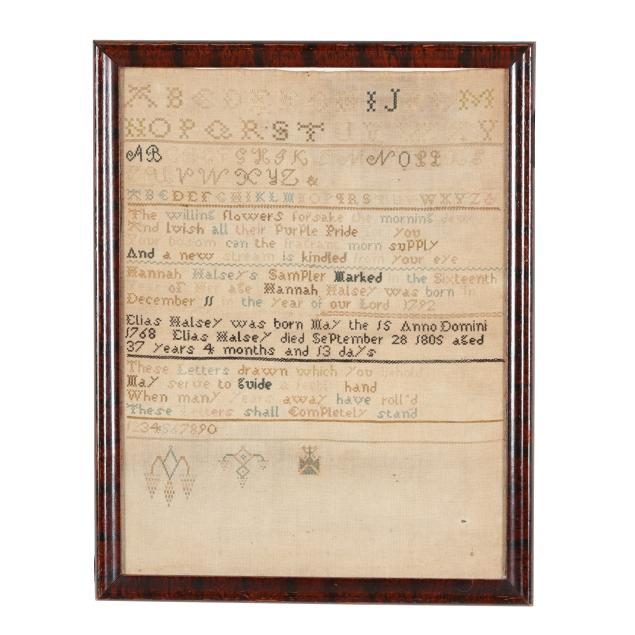 A B C D E F G H I J K L M
N O P Q R S T U V W X Y
A B G H I K L M N O P Q R S
T U V W X Y Z &
A B C D E F G H I K L M N O P Q R S T U V W X Y Z &
The willing flowers forsake the morning dew
And I wish all their PurPle Pride for you
Your bosom can the fragrant morn suPPly
And a new stream is kindled from your eye
Hannah Halsey's SamPler Marked in the Sixteenth
Year of Her age Hannah Halsey was born in
December 11 in the year of our Lord 1792
Elias Halsey was born May the 15 Anno Domini
1768 Elias Halsey died SePtember 28 1805 aged
37 years 4 months and 13 days
These Letters drawn which you behold
May serve to guide a feeble hand
When many years away have roll'd
These Letters shall ComPletely stand
1234567890